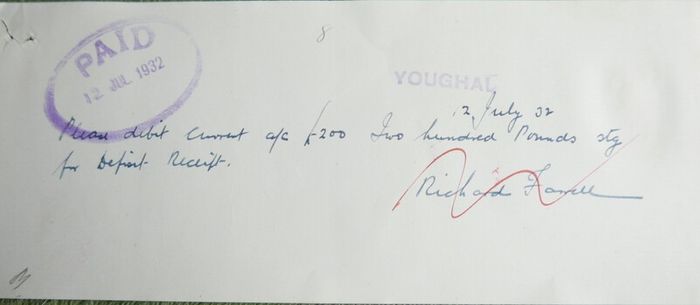 8
PAID
12 JUL 1932
YOUGHAL
12 July 32
Please debit current a/c £200 Two hundred Pounds stg
for Deposit Receipt.
Richard Farrell